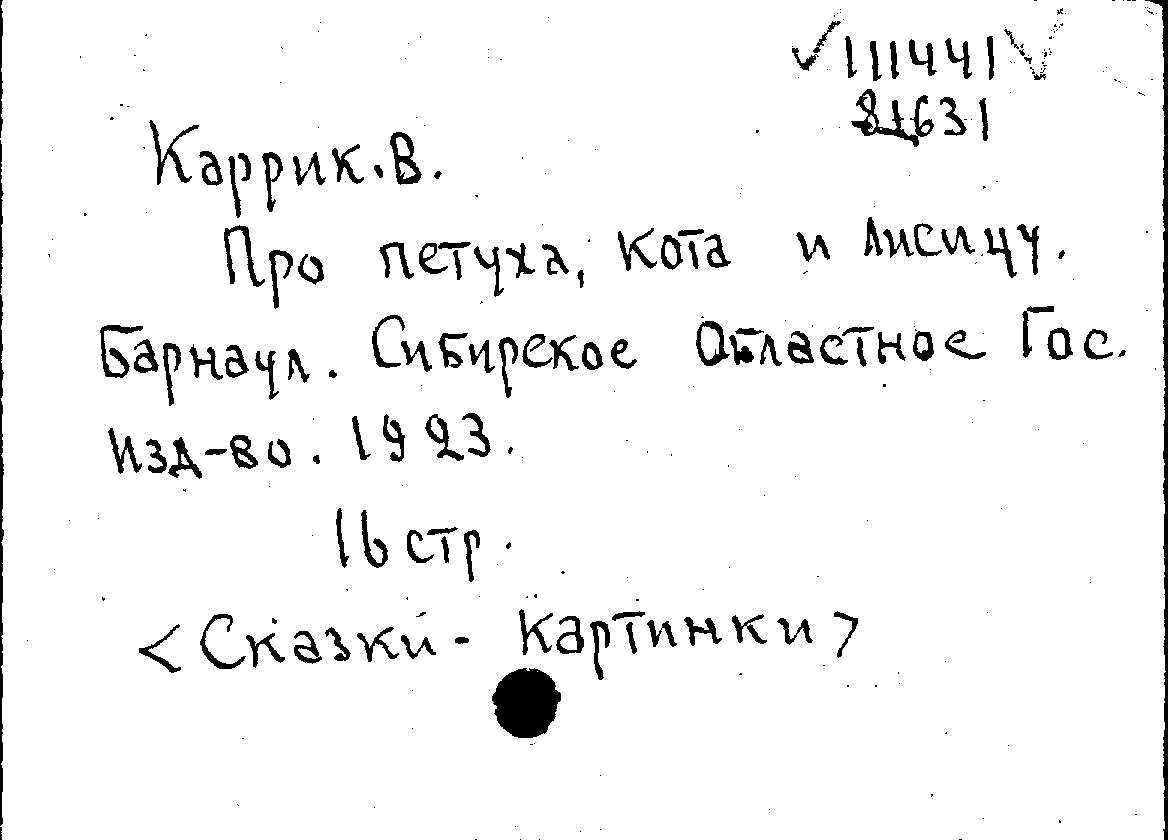 ✓111441✓
81631
Каррик.В.
Про петуха, кота и лисицу.
Барнаул. Сибирское Областное Гос.
изд-во. 1923.
16 стр.
<Сказки - картинки>